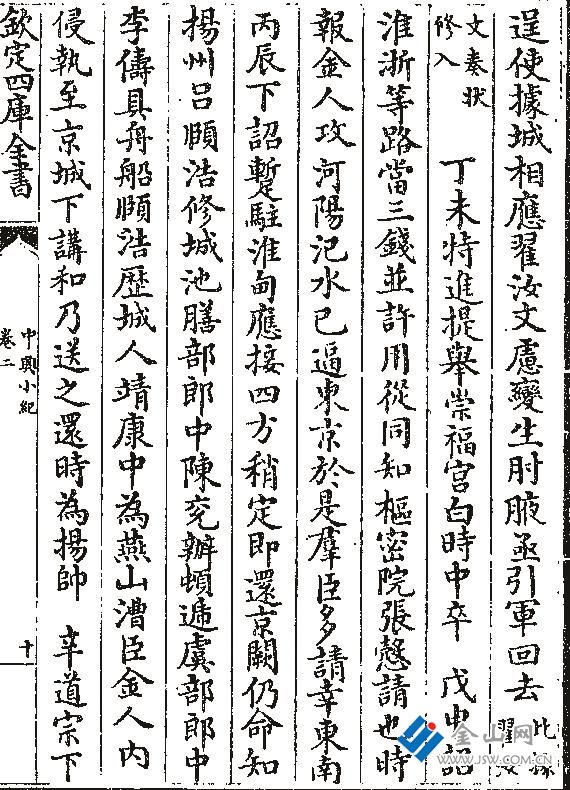 逞便據城相應翟汝文慮變生肘腋亟引軍回去 比據翟汝
文奏狀修入 丁未特進提舉崇福宮白時中卒 戊申詔
淮浙等路當三錢並許用從同知樞密院張慤請也時
報金人攻河陽汜水已逼東京於是羣臣多請幸東南
丙辰下詔蹔駐淮甸應接四方稍定即還京闕仍命知
揚州呂頤浩修城池膳部郎中陳兖辦頓遞虞部郎中
李儔具舟船頤浩歷城人靖康中為燕山漕臣金人内
侵執至京城下講和乃送之還時為揚帥 辛道宗下
欽定四庫全書
中興小紀
卷二
十
金山网
WWW.JSW.COM.CN